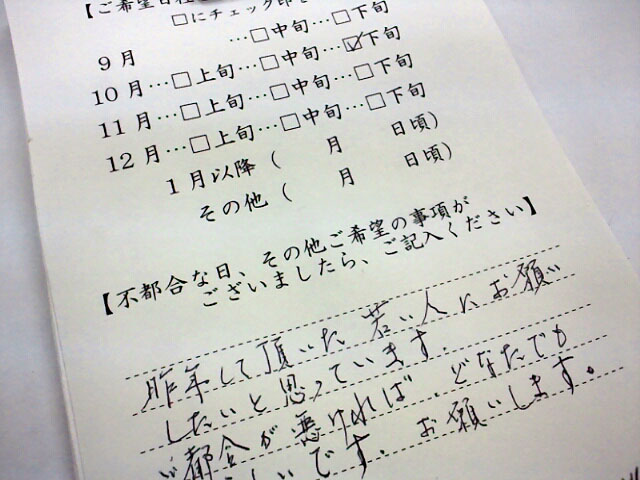 【ご希望日
□にチェック印を
9月 …□中旬…□下旬
10月…□上旬…□中旬…☑下旬
11月…□上旬…□中旬…□下旬
12月…□上旬…□中旬…□下旬
1月以降（　月　日頃）
その他（　月　日頃）
【不都合な日、その他ご希望の事項が
ございましたら、ご記入ください】
昨年して頂いた若い人にお願い
したいと思っています。
都合が悪ければ、どなたでも
いです。お願いします。